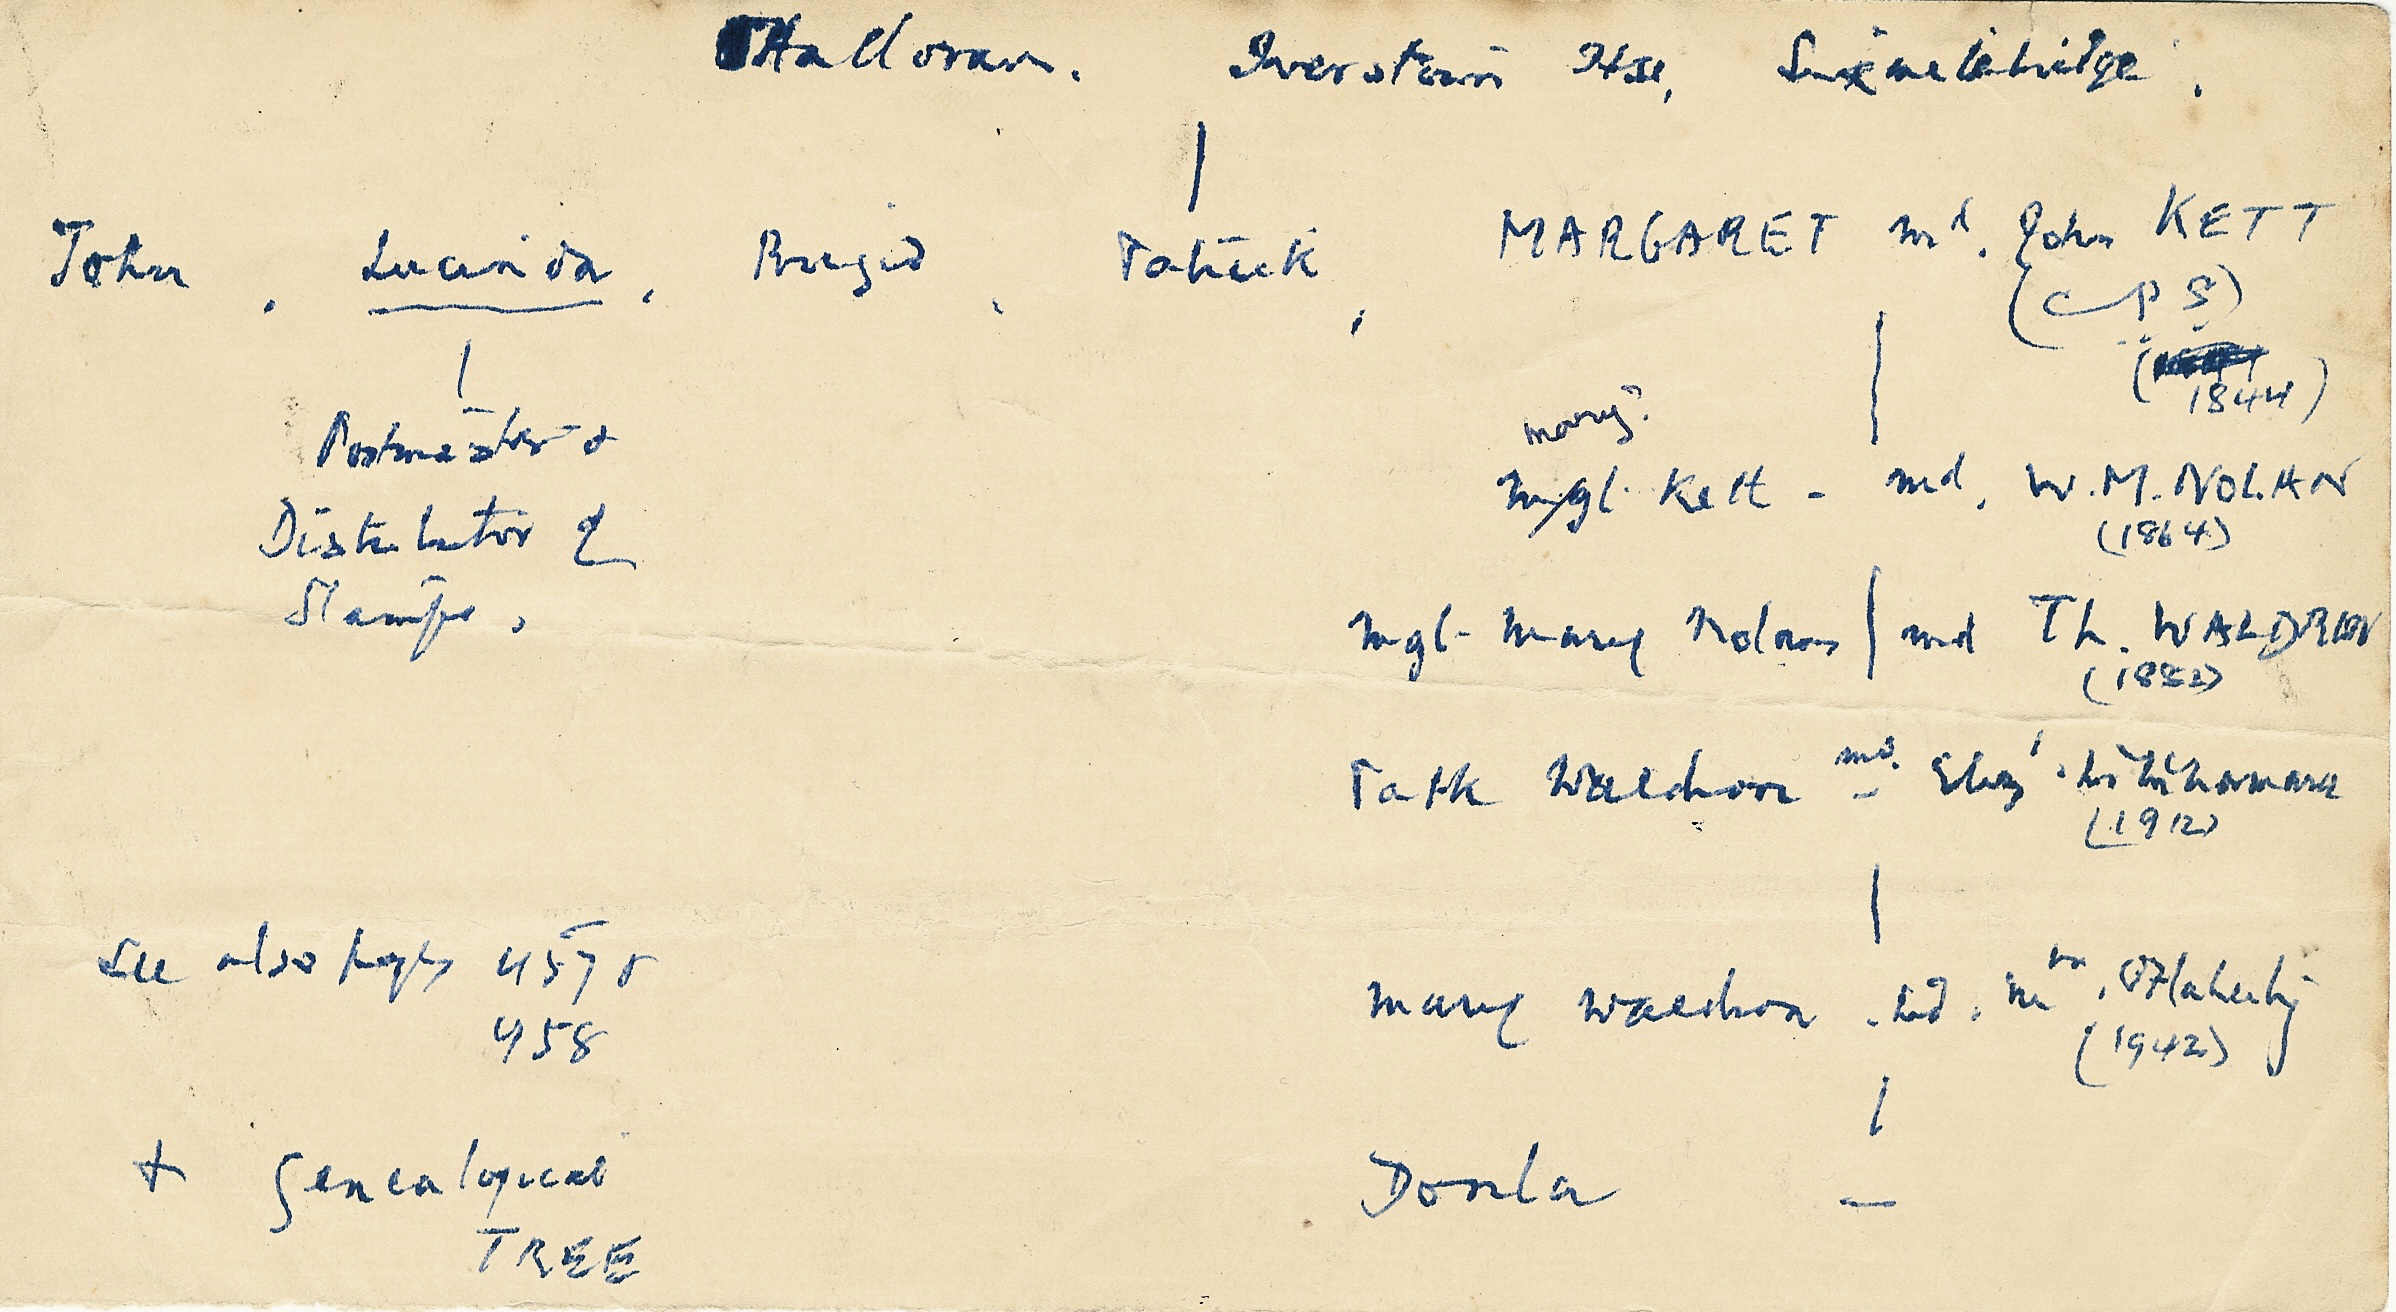 O'Halloran. Iverstown Hse, Sixmilebridge.
John, Lucinda, Brigid, Patrick, MARGARET md. John KETT
(CPS)
(1844)
Postmaster &
Distributor of
Stamps,
Mary?
Mgt. Kett - md. W. M. NOLAN
(1864)
Mgt. Mary Nolan md Th. WALDRON
(1882)
Patk Waldron md. - Eliz.
(1912)
See also pages 457 &
458
Mary Waldron - md. O'Flaherty
(1942)
+ Genealogical
TREE
Donla -